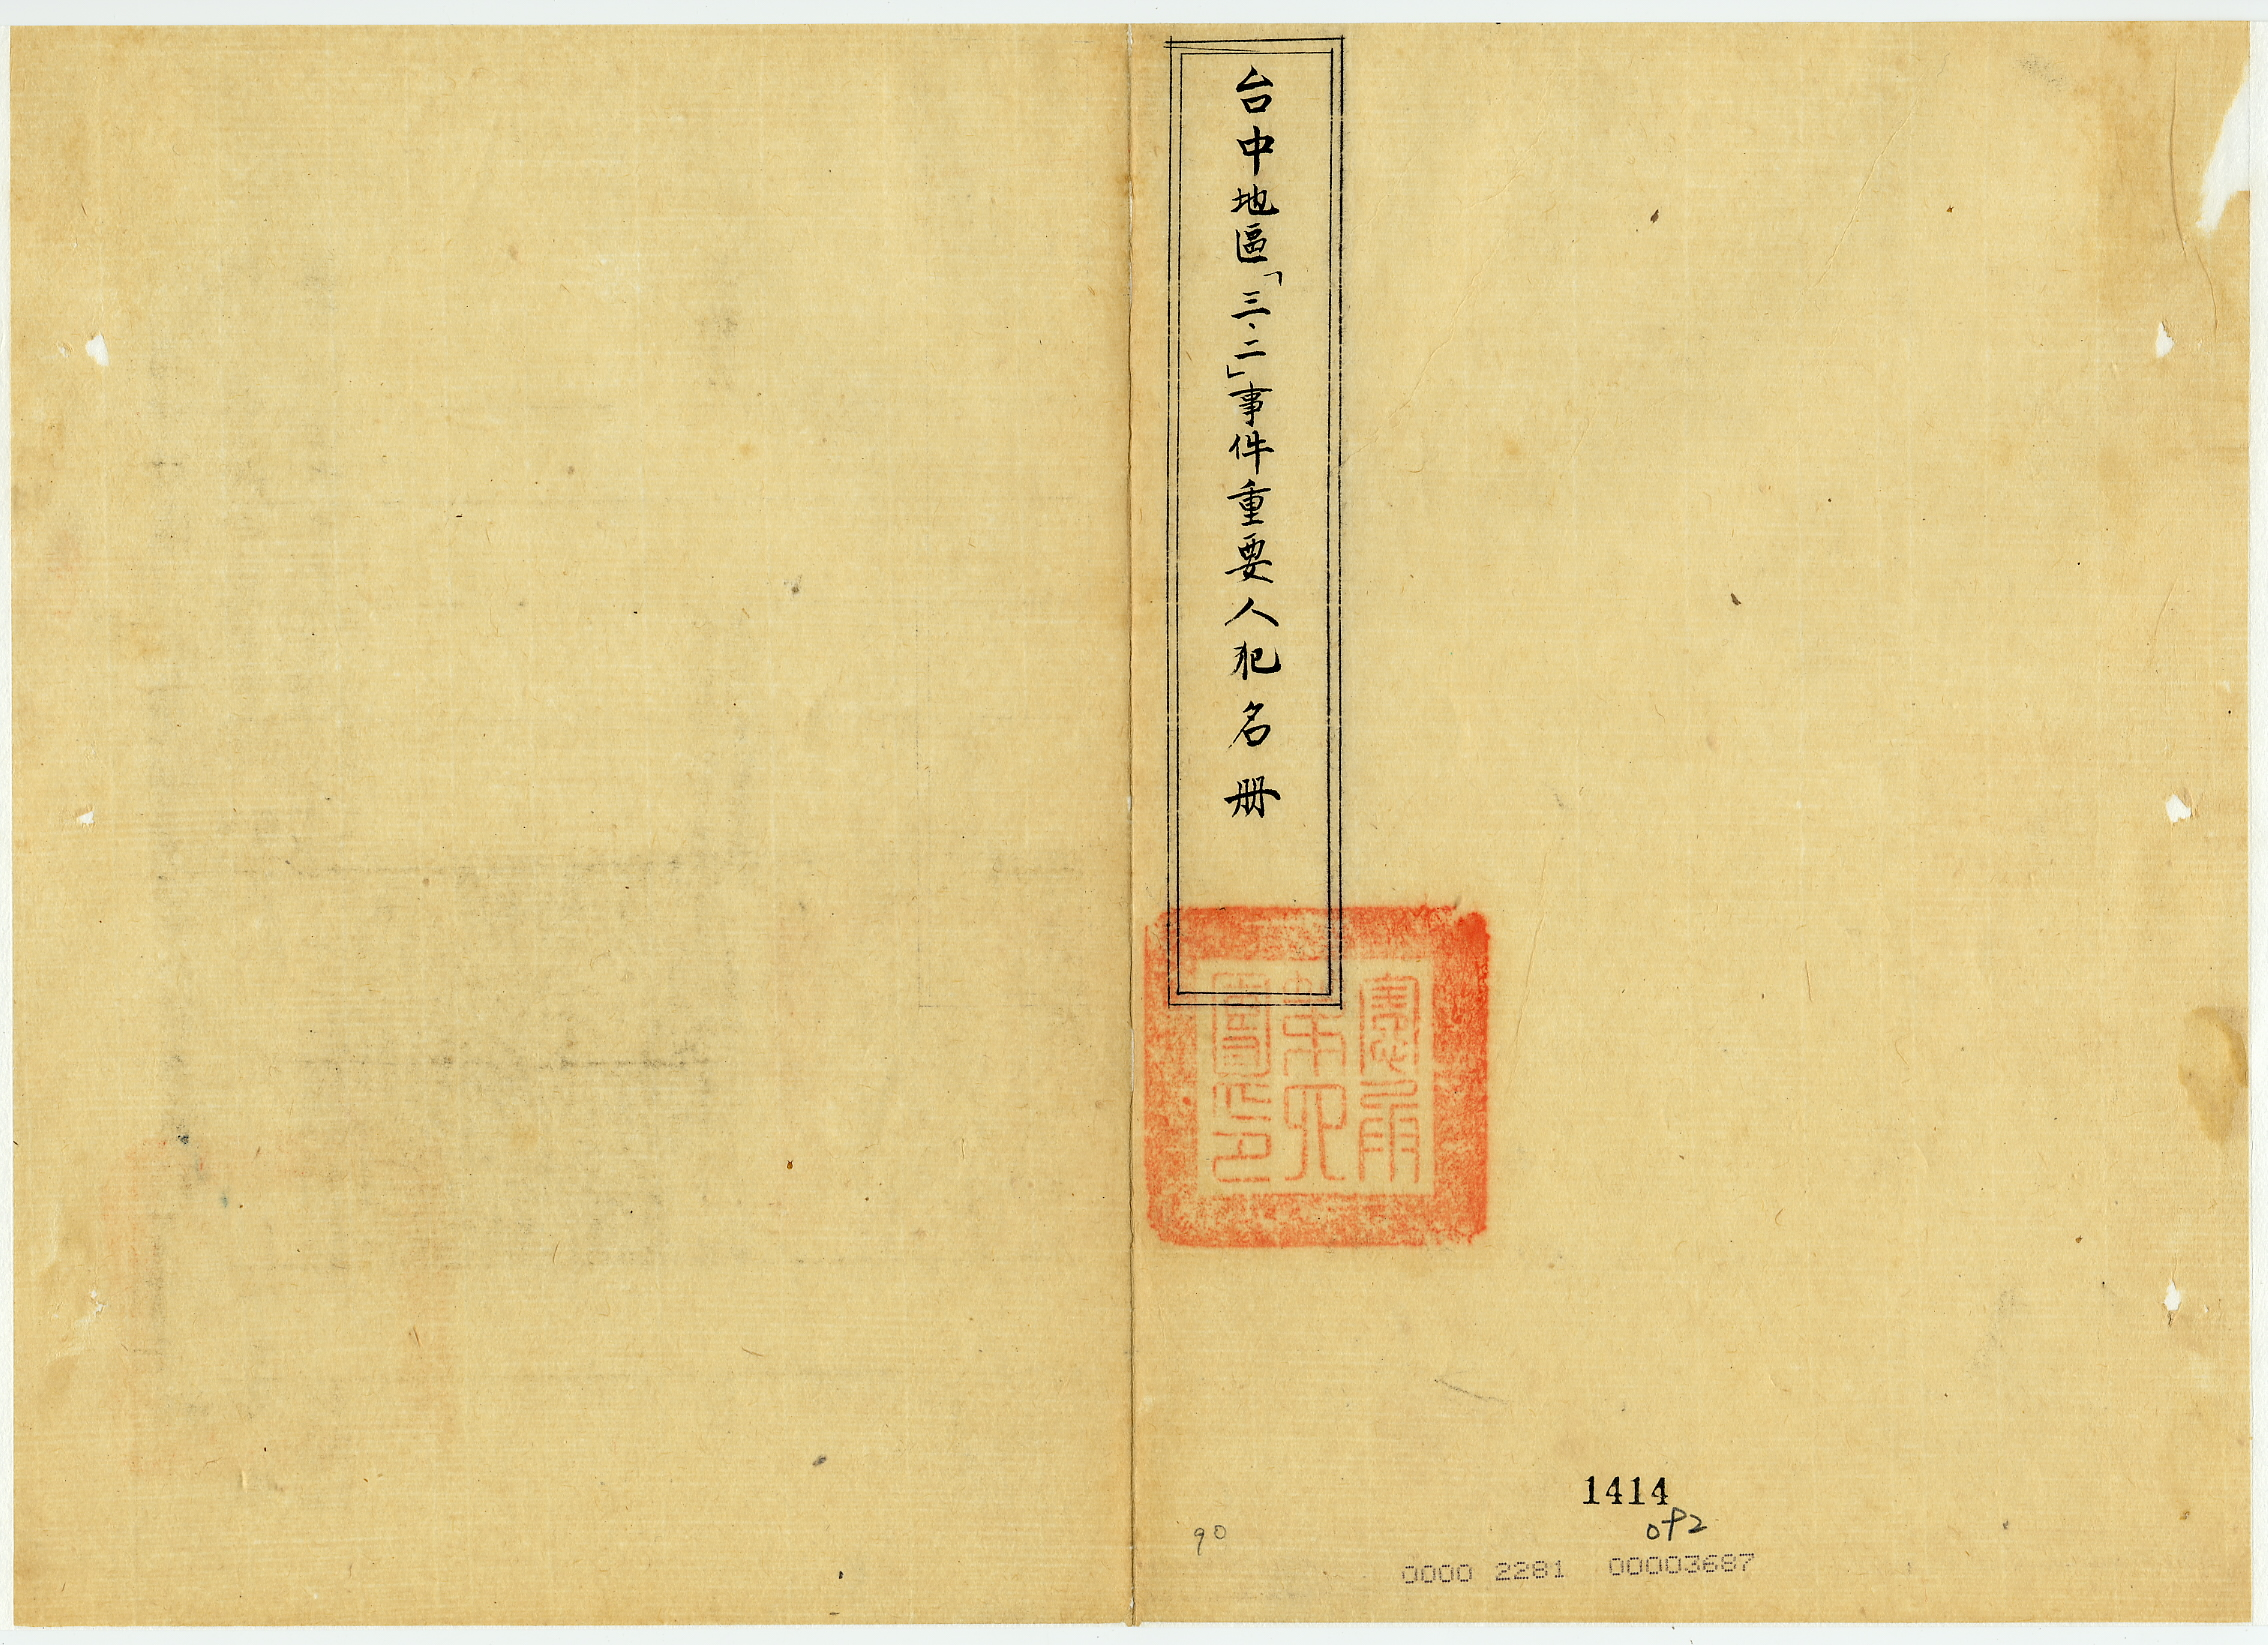 台中地區「三·二」事件重要人犯名册
1414
092
90
0000 2281 00003687